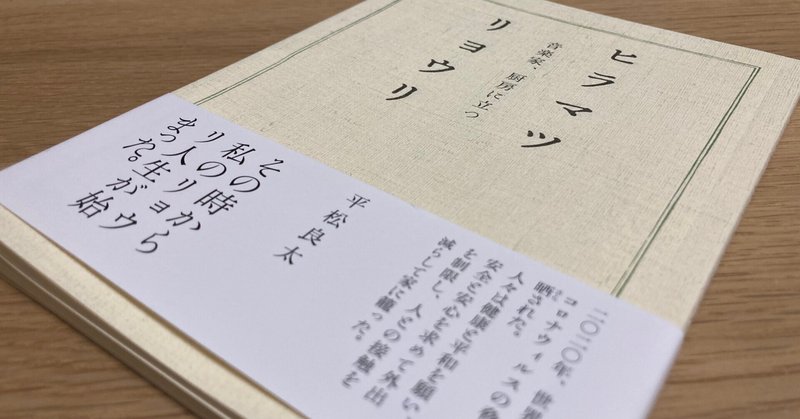 ヒラマツ
音楽家、厨房に立つ
リヨウリ
二〇二〇年、世界
コロナウィルスの
晒された。
人々は健康と平和を願い、
安全と安心を求めて外出
を制限し、人との接触を
減らして家に籠った。
平松良太
その時から
私のリョウ
リ人生が始
まった。